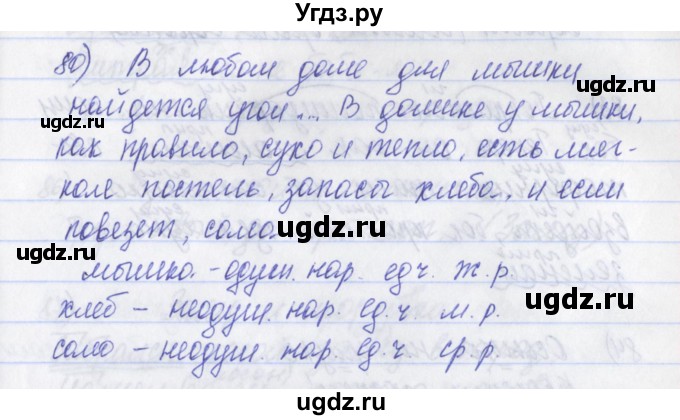 Угдз.ру
80) В любом доме для мышки
найдется угол... В домике у мышки,
как правило, сухо и тепло, есть мяг-
кая постель, запасы хлеба, и если
повезет, сало.
мышка - одуш. нар. ед.ч. ж.р.
хлеб - неодуш. нар. ед.ч. м.р.
сало - неодуш. нар. ед.ч. ср.р.
ugdz.ru
ugdz.ru
ugdz.ru
ugdz.ru
ugdz.ru
ugdz.ru
ugdz.ru